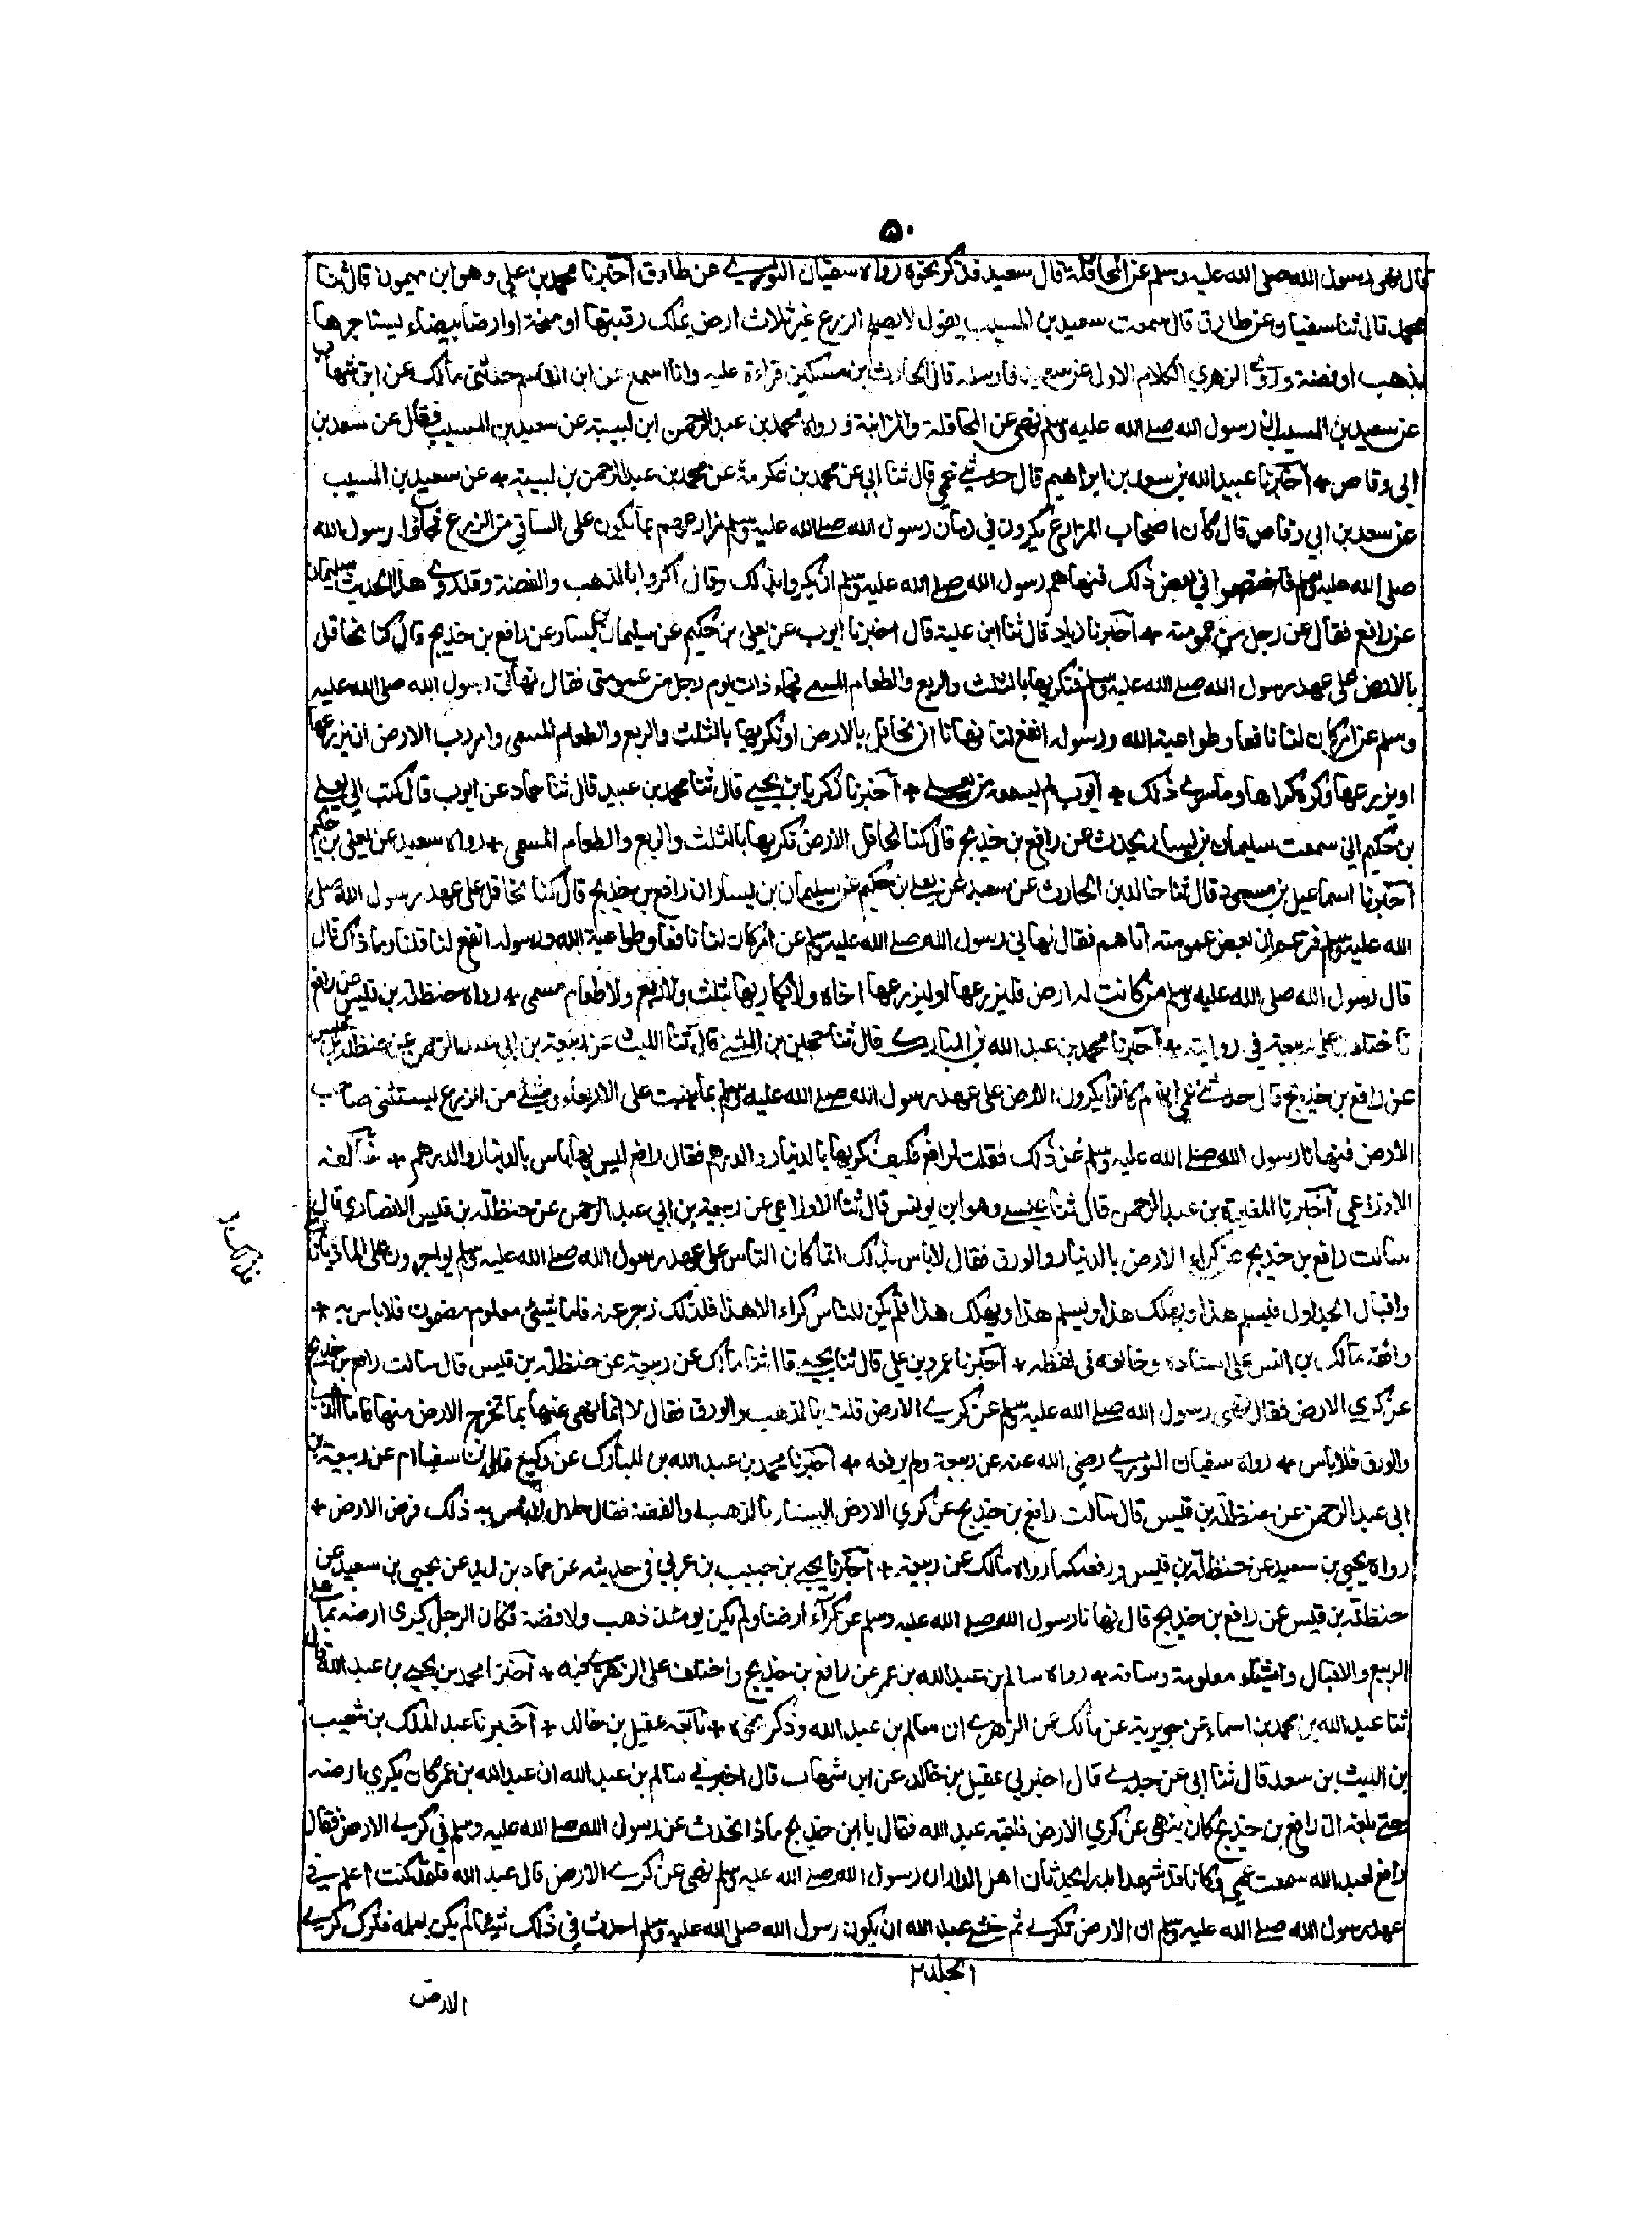 ٥٠
قال نهى رسول الله صلى الله عليه وسلم عن المحاقلة قال سعيد فذكر نحوه رواه سفيان الثوري عن طارق أخبرنا محمد بن علي وهو ابن ميمون قال ثنا
محمد قال ثنا سفيان عن طارق قال سمعت سعيد بن المسيب يقول لا يصلح الزرع غير ثلاث ارض يملك رقبتها او منحة او ارضا بيضاء يستاجرها
بذهب او فضة وروى الزهري الكلام الاول عن سعيد فارسله قال الحارث بن مسكين قراءة عليه وانا اسمع عن ابن القاسم حدثني مالك عن ابن شهاب
عن سعيد بن المسيب ان رسول الله صلى الله عليه وسلم نهى عن المحاقلة والمزابنة ورواه محمد بن عبد الرحمن ابن لبيبة عن سعيد بن المسيب فقال عن سعد بن
ابي وقاص + أخبرنا عبيد الله بن سعد بن ابراهيم قال حدثني عمي قال ثنا ابي عن محمد بن عكرمة عن محمد بن عبد الرحمن بن لبيبة + عن سعيد بن المسيب
عن سعد بن ابي وقاص قال كان اصحاب المزارع يكرون في زمان رسول الله صلى الله عليه وسلم مزارعهم بما يكون على الساقي من الزرع فجاؤا رسول الله
صلى الله عليه وسلم فاختصموا في بعض ذلك فنهاهم رسول الله صلى الله عليه وسلم ان يكروا بذلك وقال اكروا بالذهب والفضة وقد روى هذا الحديث سليمان
عن رافع فقال عن رجل من عمومته + أخبرنا زياد قال ثنا ابن علية قال اخبرنا ايوب عن يعلى بن حكيم عن سليمان بن يسار عن رافع بن خديج قال كنا نحاقل
بالارض على عهد رسول الله صلى الله عليه وسلم فنكريها بالثلث والربع والطعام المسمى فجاء ذات يوم رجل من عمومتي فقال نهاني رسول الله صلى الله عليه
وسلم عن امر كان لنا نافعا وطواعية الله ورسوله انفع لنا نهانا ان نحاقل بالارض او نكريها بالثلث والربع والطعام المسمى وامر رب الارض ان يزرعها
او يزرعها وكره كراها وما سوى ذلك + أيوب لم يسمعه من يعلى + أخبرنا زكريا بن يحيى قال ثنا محمد بن عبيد قال ثنا حماد عن ايوب قال كتب الي يعلى
بن حكيم اني سمعت سليمان بن يسار يحدث عن رافع بن خديج قال كنا نحاقل الارض نكريها بالثلث والربع والطعام المسمى + رواه سعيد عن يعلى بن حكيم
أخبرنا اسماعيل بن مسعود قال ثنا خالد بن الحارث عن سعيد عن يعلى بن حكيم عن سليمان بن يسار ان رافع بن خديج قال كنا نحاقل على عهد رسول الله صلى
الله عليه وسلم فزعم ان بعض عمومته اتاهم فقال نهاني رسول الله صلى الله عليه وسلم عن امر كان لنا نافعا وطواعية الله ورسوله انفع لنا قلنا وما ذاك قال
قال رسول الله صلى الله عليه وسلم من كانت له ارض فليزرعها او ليزرعها اخاه ولا يكاريها بثلث ولا ربع ولا طعام مسمى + رواه حنظلة بن قيس عن رافع
فاختلف على ربيعة في روايته + أخبرنا محمد بن عبد الله بن المبارك قال ثنا حجين بن المثنى قال ثنا الليث عن ربيعة بن ابي عبد الرحمن عن حنظلة بن قيس
عن رافع بن خديج قال حدثني عمي انهم كانوا يكرون الارض على عهد رسول الله صلى الله عليه وسلم بما ينبت على الاربعاء وشيئ من الزرع يستثنى صاحب
الارض فنهانا رسول الله صلى الله عليه وسلم عن ذلك فقلت لرافع فكيف نكريها بالدينار والدرهم فقال رافع ليس بها باس بالدينار والدرهم + خالفه
الاوزاعي أخبرنا المغيرة بن عبد الرحمن قال ثنا عيسى وهو ابن يونس قال ثنا الاوزاعي عن ربيعة بن ابي عبد الرحمن عن حنظلة بن قيس الانصاري قال
سالت رافع بن خديج عن كراء الارض بالدينار والورق فقال لا باس بذلك انما كان الناس على عهد رسول الله صلى الله عليه وسلم يواجرون على الماذيانات
واقبال الجداول فيسلم هذا ويهلك هذا ويسلم هذا ويهلك هذا فلم يكن للناس كراء الا هذا فلذلك زجر عنه فاما شيئ معلوم مضمون فلا باس به +
وافقه مالك بن انس على اسناده وخالفه في لفظه + أخبرنا عمرو بن علي قال ثنا يحيى قال ثنا مالك عن ربيعة عن حنظلة بن قيس قال سالت رافع بن خديج
عن كري الارض فقال نهى رسول الله صلى الله عليه وسلم عن كرى الارض قلت بالذهب والورق فقال لا انما نهى عنها بما تخرج الارض منها فاما الذهب
والورق فلا باس + رواه سفيان الثوري رضي الله عنه عن ربيعة ولم يرفعه + أخبرنا محمد بن عبد الله بن المبارك عن وكيع قال ثنا سفيان عن ربيعة بن
ابي عبد الرحمن عن حنظلة بن قيس قال سالت رافع بن خديج عن كري الارض البيضاء بالذهب والفضة فقال حلال لا باس به ذلك فرض الارض +
رواه يحيى بن سعيد عن حنظلة بن قيس ورفعه كما رواه مالك عن ربيعة + أخبرنا يحيى بن حبيب بن عربي في حديثه عن حماد بن زيد عن يحيى بن سعيد عن
حنظلة بن قيس عن رافع بن خديج قال نهانا رسول الله صلى الله عليه وسلم عن كراء ارضنا ولم يكن يومئذ ذهب ولا فضة فكان الرجل يكرى ارضه بما على
الربيع والاقبال واشياء معلومة وساقه + رواه سالم بن عبد الله بن عمر عن رافع بن خديج واختلف على الزهري فيه + أخبرنا محمد بن يحيى بن عبد الله قال
ثنا عبد الله بن محمد بن اسماء عن جويرية عن مالك عن الزهري ان سالم بن عبد الله وذكر نحوه + تابعه عقيل بن خالد + أخبرنا عبد الملك بن شعيب
بن الليث بن سعد قال ثنا ابي عن جدي قال اخبرني عقيل بن خالد عن ابن شهاب قال اخبرني سالم بن عبد الله ان عبد الله بن عمر كان يكري ارضه
حتى بلغه ان رافع بن خديج كان ينهى عن كري الارض فلقيه عبد الله فقال يا ابن خديج ماذا تحدث عن رسول الله صلى الله عليه وسلم في كرى الارض فقال
رافع لعبد الله سمعت عمي وكانا قد شهدا بدرا يحدثان اهل الدار ان رسول الله صلى الله عليه وسلم نهى عن كرى الارض قال عبد الله فلقد كنت اعلم في
عهد رسول الله صلى الله عليه وسلم ان الارض تكرى ثم خشي عبد الله ان يكون رسول الله صلى الله عليه وسلم احدث في ذلك شيئا لم يكن يعلمه فترك كرى
المجلد ٢
الارض